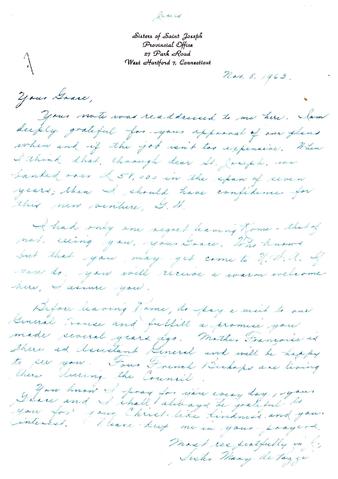 Sisters of Saint Joseph
Provincial Office
27 Park Road
West Hartford 7, Connecticut
Nov. 8, 1963.
Your Grace,
Your note was readdressed to me here. I am
deeply grateful for your approval of our plans
when and if the got isn't too expensive. When
I think that, through dear St. Joseph, we
banked over £ 58,000 in the span of seven
years, then I should have confidence for
this new venture, G. H.
I had only one regret leaving Rome - that of
not seeing you, your Grace. Who knows
but that you may yet come to U.S.A. If
so, you will receive a warm welcome
here, I assure you.
Before leaving Rome, do pay a visit to our
General House and fulfill a promise you
made several years ago. Mother Françoise is
there as Assistant General and will be happy
to see you. Four French Bishops are living
there during the Council.
You know I pray for you every day, your
Grace and I shall always be grateful to
you for your Christ-like kindness and your
interest. Please keep me in your prayers.
Most respectfully in J.,
Sister Mary de